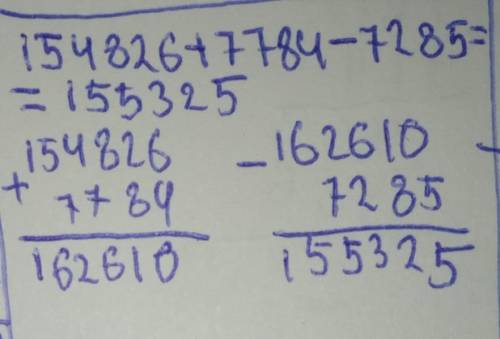 154826+7784-7285=
=155325
154826
+ 7784
162610
-162610
7285
155325